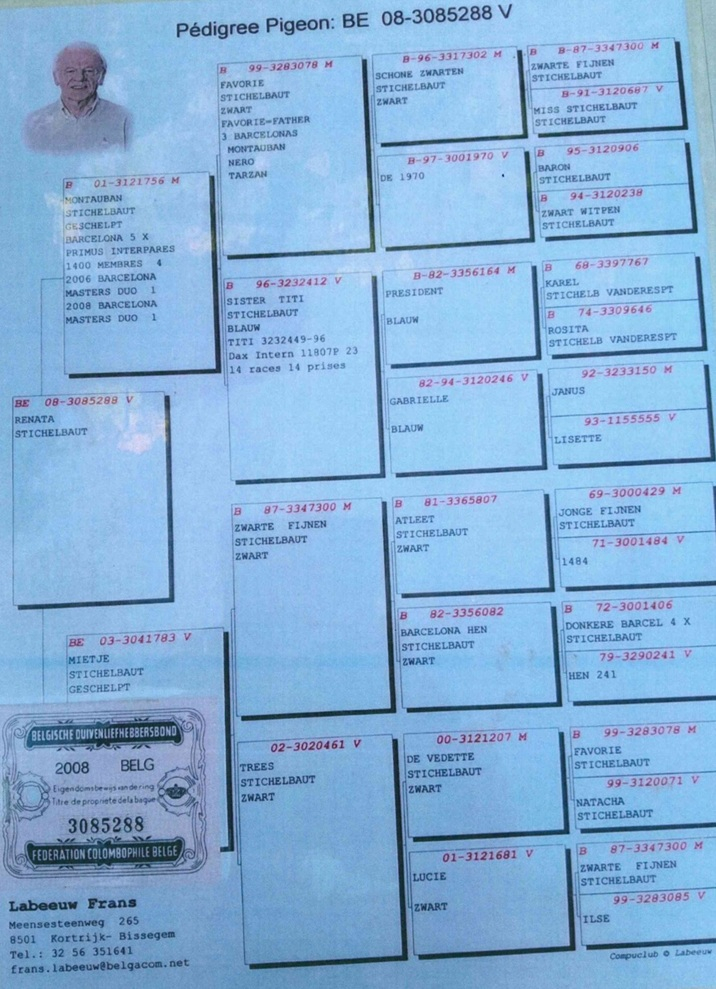 Pédigree Pigeon: BE 08-3085288 V
BE 08-3085288 V
RENATA
STICHELBAUT
B 01-3121756 M
MONTAUBAN
STICHELBAUT
GESCHELPT
BARCELONA 5 X
PRIMUS INTERPARES
1400 MEMBRES 4
2006 BARCELONA
MASTERS DUO 1
2008 BARCELONA
MASTERS DUO 1
BE 03-3041783 V
MIETJE
STICHELBAUT
GESCHELPT
B 99-3283078 M
FAVORIE
STICHELBAUT
ZWART
FAVORIE=FATHER
3 BARCELONAS
MONTAUBAN
NERO
TARZAN
B 96-3232412 V
SISTER TITI
STICHELBAUT
BLAUW
TITI 3232449-96
Dax Intern 11807P 23
14 races 14 prises
B 87-3347300 M
ZWARTE FIJNEN
STICHELBAUT
ZWART
02-3020461 V
TREES
STICHELBAUT
ZWART
B-96-3317302 M
SCHONE ZWARTEN
STICHELBAUT
ZWART
B-97-3001970 V
DE 1970
B-82-3356164 M
PRESIDENT
BLAUW
82-94-3120246 V
GABRIELLE
BLAUW
B 81-3365807
ATLEET
STICHELBAUT
ZWART
B 82-3356082
BARCELONA HEN
STICHELBAUT
ZWART
00-3121207 M
DE VEDETTE
STICHELBAUT
ZWART
01-3121681 V
LUCIE
ZWART
B-87-3347300 M
ZWARTE FIJNEN
STICHELBAUT
B-91-3120687 V
MISS STICHELBAUT
STICHELBAUT
B 95-3120906
BARON
STICHELBAUT
B 94-3120238
ZWART WITPEN
STICHELBAUT
B 68-3397767
KAREL
STICHELB VANDERESPT
B 74-3309646
ROSITA
STICHELB VANDERESPT
92-3233150 M
JANUS
93-1155555 V
LISETTE
69-3000429 M
JONGE FIJNEN
STICHELBAUT
71-3001484 V
1484
B 72-3001406
DONKERE BARCEL 4 X
STICHELBAUT
79-3290241 V
HEN 241
B 99-3283078 M
FAVORIE
STICHELBAUT
99-3120071 V
NATACHA
STICHELBAUT
B 87-3347300 M
ZWARTE FIJNEN
STICHELBAUT
99-3283085 V
ILSE
BELGISCHE DUIVENLIEFHEBBERSBOND
2008 BELG
Eigendomsbewijs van de ring
Titre de propriété de la bague
3085288
FEDERATION COLOMBOPHILE BELGE
Labeeuw Frans
Meensesteenweg 265
8501 Kortrijk- Bissegem
Tel.: 32 56 351641
frans.labeeuw@belgacom.net
Compuclub © Labeeuw